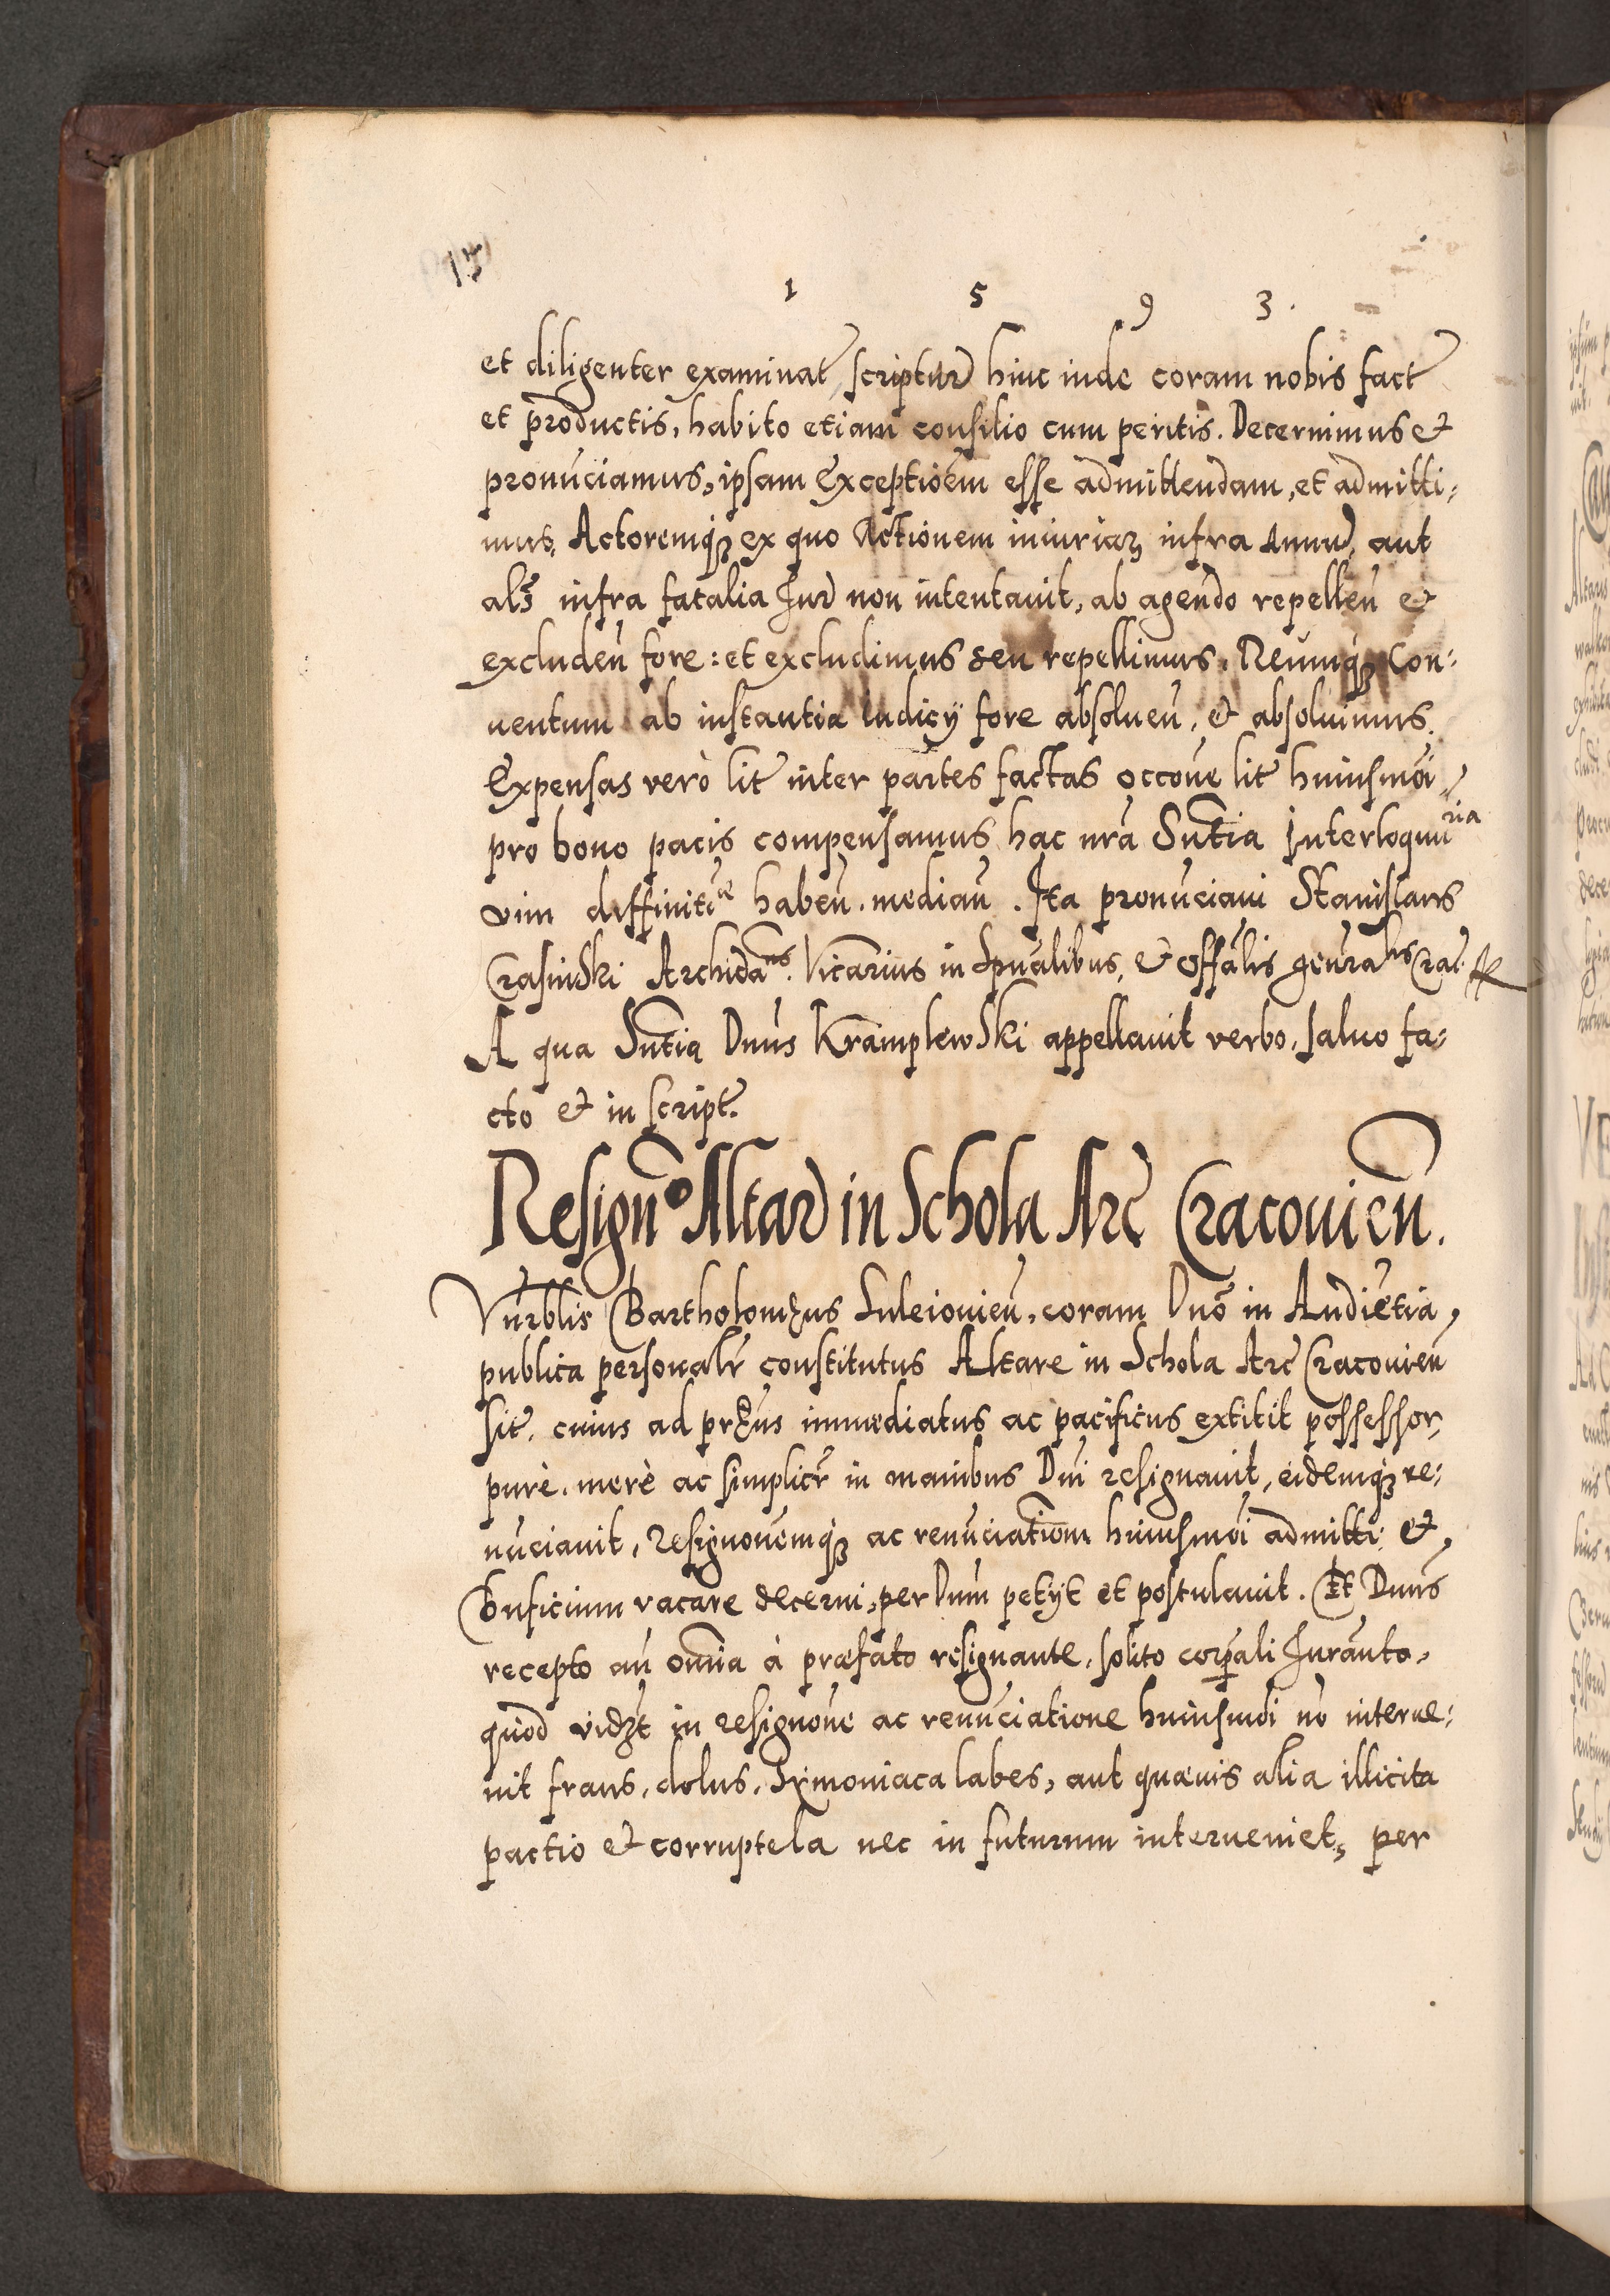 1 5 9 3.
et diligenter examinat̃ scriptur̃ hinc inde coram nobis fact̃
et productis, habito etiam consilio cum peritis. Decernimus et
pronũciamus, ipsam Exceptiõem esse admittendam, et admitti-
mus, Actoremq̃ ex quo Actionem iniuriaꝝ infra annũ, aut
als̃ infra fatalia Jur̃ non intentauit, ab agendo repelleñ et
excludeñ fore: et excludimus seu repellimus. Reumq̃ Con-
uentum ab instantia iudicÿ fore absolueñ, et absoluimus.
Expensas verò lit̃ inter partes factas occõne lit̃ huiusmõi,
pro bono pacis compensamus hac nr̃a Sñtia Interloquu͂ria
vim diffinit̃ue habeñ. mediañ. Ita pronũciaui Stanislaus
Crasinski Archidãns. Vicarius in Spũalibus, et Offãlis geñralis Crac̃
A qua Sñtia Dñus Kramplewski appellauit verbo, saluo fa-
cto et in script̃.
Resignõ Altar̃ in Schola Arc̃ Cracouieñ.
Vñrblis Bartholomęus Suleiouieñ, coram Dñõ in Audiẽtia,
publica personalr̃ constitutus Altare in Schola Arc̃ Cracouieñ
sit̃. cuius ad pręñs immediatus ac pacificus extitit possessor,
purè. merè ac simplicr̃ in manibus Dñi resignauit, eidemq̃ re-
nũciauit, Resignõnemq̃ ac renũciatiom huiusmõi admitti et,
Bnficium vacare decerni, per Dnm petÿt et postulauit. Et Dnus
recepto añ omnia à praefato resignante, solito corp̃ali Jurãnto,
quod videt in resignõne ac renũciatione huiusmõi nõ interue-
nit fraus, dolus, Symoniaca labes, aut quaeuis alia illicita
pactio et corruptela nec in futurum interueniet, per